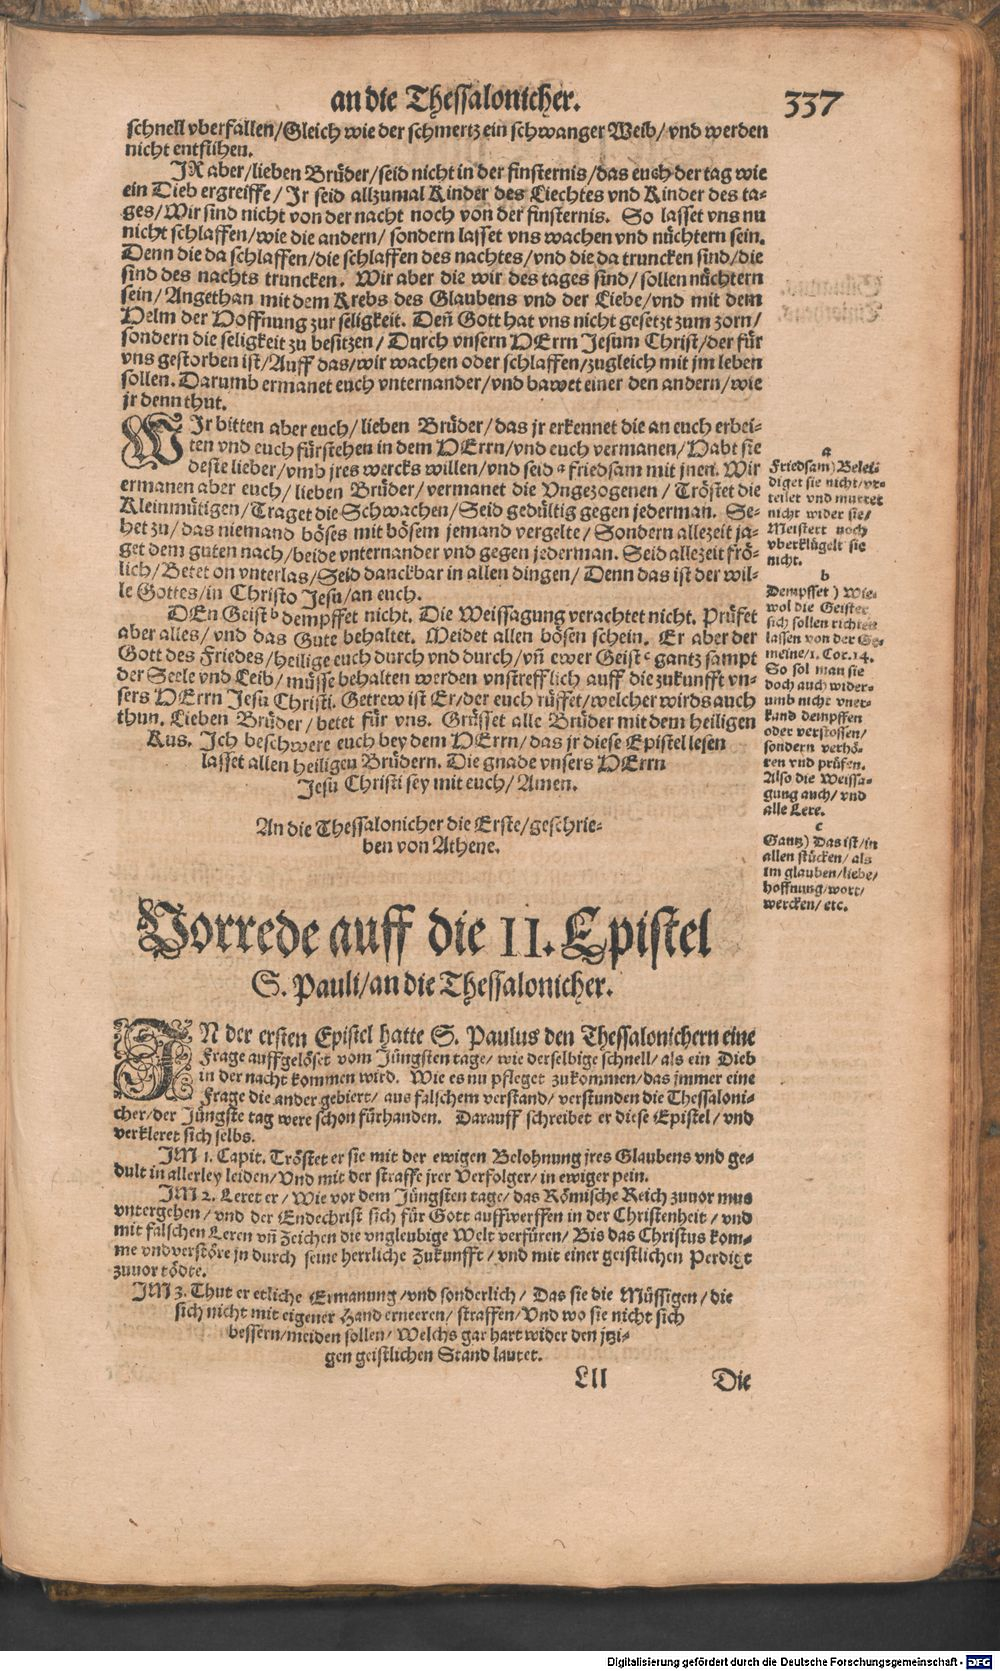 an die Thessalonicher. 337
schnell vberfallen/Gleich wie der schmertz ein schwanger Weib/vnd werden
nicht entflihen.
JR aber/lieben Brüder/seid nicht in der finsternis/das euch der tag wie
ein Dieb ergreiffe/Jr seid allzumal Kinder des Liechtes vnd Kinder des ta-
ges/Wir sind nicht von der nacht noch von der finsternis. So lasset vns nu
nicht schlaffen/wie die andern/sondern lasset vns wachen vnd nüchtern sein.
Denn die da schlaffen/die schlaffen des nachtes/vnd die da truncken sind/die
sind des nachts truncken. Wir aber die wir des tages sind/sollen nüchtern
sein/Angethan mit dem Krebs des Glaubens vnd der Liebe/vnd mit dem
Helm der Hoffnung zur seligkeit. Deñ Gott hat vns nicht gesetzt zum zorn/
sondern die seligkeit zu besitzen/Durch vnsern HErrn Jesum Christ/der für
vns gestorben ist/Auff das/wir wachen oder schlaffen/zugleich mit jm leben
sollen. Darumb ermanet euch vnternander/vnd bawet einer den andern/wie
jr denn thut.
WJr bitten aber euch/lieben Brüder/das jr erkennet die an euch erbei-
ten vnd euch fürstehen in dem HErrn/vnd euch vermanen/Habt sie
deste lieber/vmb jres wercks willen/vnd seid a friedsam mit jnen. Wir
ermanen aber euch/lieben Brüder/vermanet die Vngezogenen/Tröstet die
Kleinmütigen/Traget die Schwachen/Seid gedültig gegen jederman. Se-
het zu/das niemand böses mit bösem jemand vergelte/Sondern allezeit ja-
get dem guten nach/beide vnternander vnd gegen jederman. Seid allezeit frö-
lich/Betet on vnterlas/Seid danckbar in allen dingen/Denn das ist der wil-
le Gottes/in Christo Jesu/an euch.
DEn Geist b dempffet nicht. Die Weissagung verachtet nicht. Prüfet
aber alles/vnd das Gute behaltet. Meidet allen bösen schein. Er aber der
Gott des Friedes/heilige euch durch vnd durch/vñ ewer Geist c gantz sampt
der Seele vnd Leib/müsse behalten werden vnstrefflich auff die zukunfft vn-
sers HErrn Jesu Christi. Getrew ist Er/der euch rüffet/welcher wirds auch
thun. Lieben Brüder/betet für vns. Grüsset alle Brüder mit dem heiligen
Kus. Ich beschwere euch bey dem HErrn/das jr diese Epistel lesen
lasset allen heiligen Brüdern. Die gnade vnsers HErrn
Jesu Christi sey mit euch/Amen.
An die Thessalonicher die Erste/geschrie-
ben von Athene.
a
Friedsam) Belei-
diget sie nicht/vr-
teilet vnd murret
nicht wider sie/
Meistert noch
vberklügelt sie
nicht.
b
Dempffet) Wie-
wol die Geister
sich sollen richten
lassen von der Ge-
meine/1. Cor. 14.
So sol man sie
doch auch wider-
umb nicht vner-
kand dempffen
oder verstossen/
sondern verhö-
ren vnd prüfen.
Also die Weissa-
gung auch/vnd
alle Lere.
c
Gantz) Das ist/in
allen stücken/als
im glauben/liebe/
hoffnung/wort/
wercken/etc.
Vorrede auff die II. Epistel
S. Pauli/an die Thessalonicher.
JN der ersten Epistel hatte S. Paulus den Thessalonichern eine
Frage auffgelöset vom Jüngsten tage/wie derselbige schnell/als ein Dieb
in der nacht kommen wird. Wie es nu pfleget zukommen/das jmmer eine
Frage die ander gebiert/aus falschem verstand/verstunden die Thessaloni-
cher/der Jüngste tag were schon fürhanden. Darauff schreibet er diese Epistel/vnd
verkleret sich selbs.
JM 1. Capit. Tröstet er sie mit der ewigen Belohnung jres Glaubens vnd ge-
dult in allerley leiden/Vnd mit der straffe jrer Verfolger/in ewiger pein.
JM 2. Leret er/Wie vor dem Jüngsten tage/das Römische Reich zuuor mus
vntergehen/vnd der Endechrist sich für Gott auffwerffen in der Christenheit/vnd
mit falschen Leren vñ Zeichen die vngleubige Welt verfüren/Bis das Christus kom-
me vnd verstöre jn durch seine herrliche Zukunfft/vnd mit einer geistlichen Perdigt
zuuor tödte.
JM 3. Thut er etliche Ermanung/vnd sonderlich/Das sie die Müssigen/die
sich nicht mit eigener Hand erneeren/straffen/Vnd wo sie nicht sich
bessern/meiden sollen/Welchs gar hart wider den jtzi-
gen geistlichen Stand lautet.
Lll Die
Digitalisierung gefördert durch die Deutsche Forschungsgemeinschaft - DFG